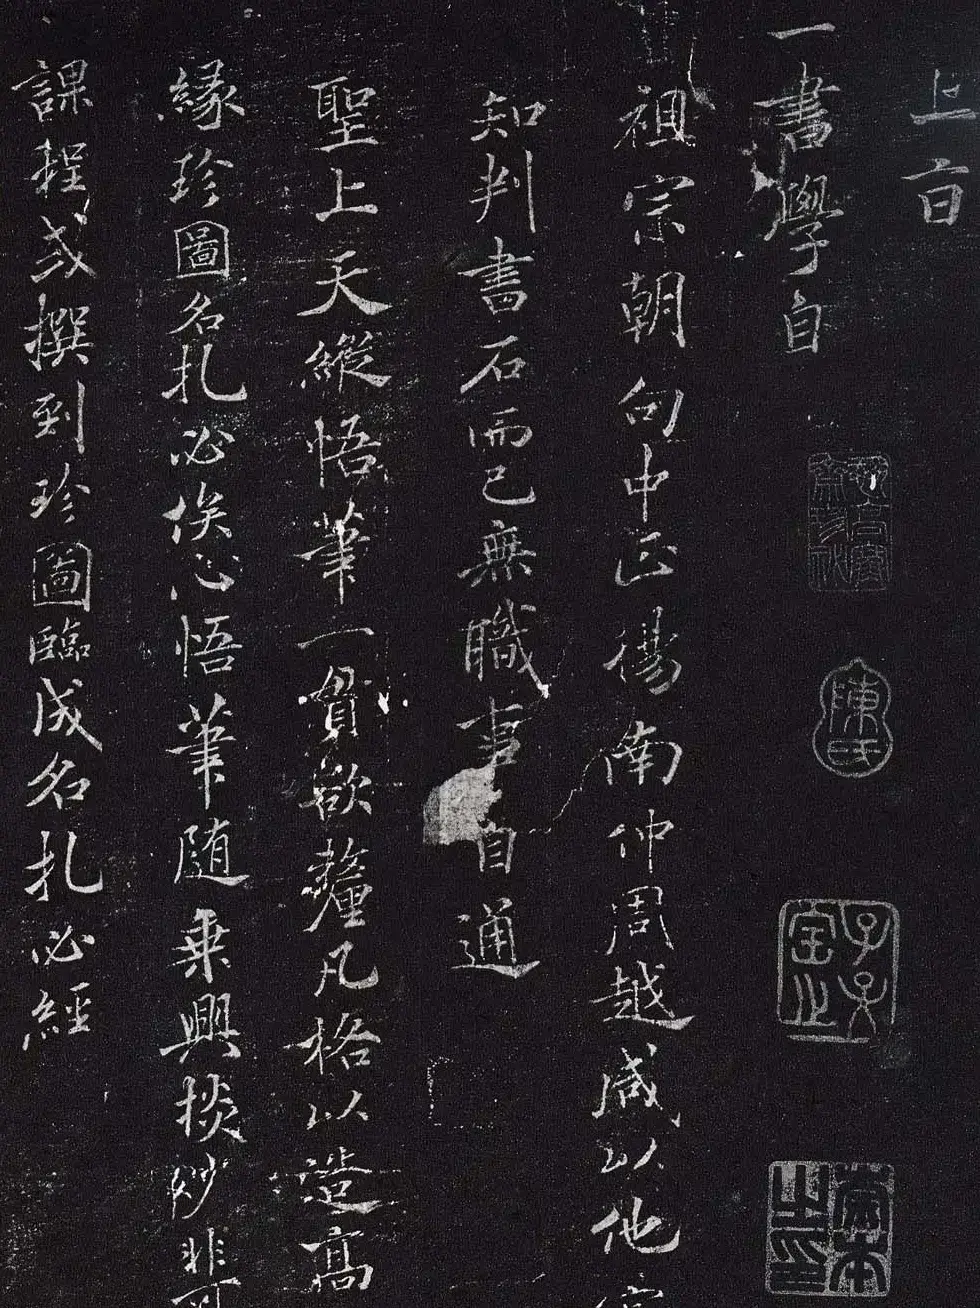 上百
一書學自
祖宗朝句中正楊南仲周越咸以他官
知判書石而已無職事自通
聖上天縱悟筆一貫欲釐凡格以造高
緣珍圖名札必俟心悟筆随乘興掞妙非可
課程或撰到珍圖臨成名札必經
陳氏
子子
寶之